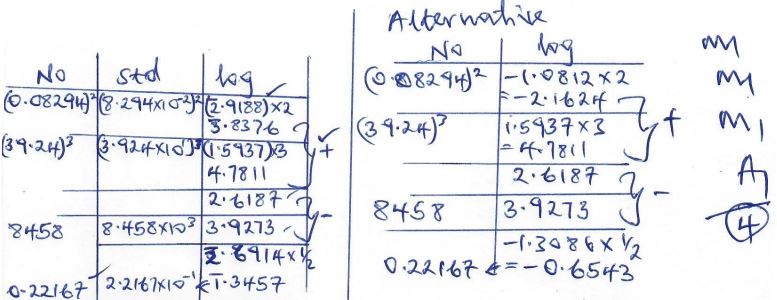 No std log
(0.08294)² (8.294×10⁻²)² (2̄.9188)×2
3̄.8376
(39.24)³ (3.924×10¹)³ (1.5937)3
4.7811
+
2.6187
8458 8.458×10³ 3.9273
-
2̄.6914×½
0.22167 2.2167×10⁻¹ ← 1̄.3457
Alternative
No log
(0.08294)² -1.0812×2
=-2.1624
(39.24)³ 1.5937×3
=4.7811
+
2.6187
8458 3.9273
-
-1.3086×½
0.22167 ←=-0.6543
M1
M1
M1
A1
4